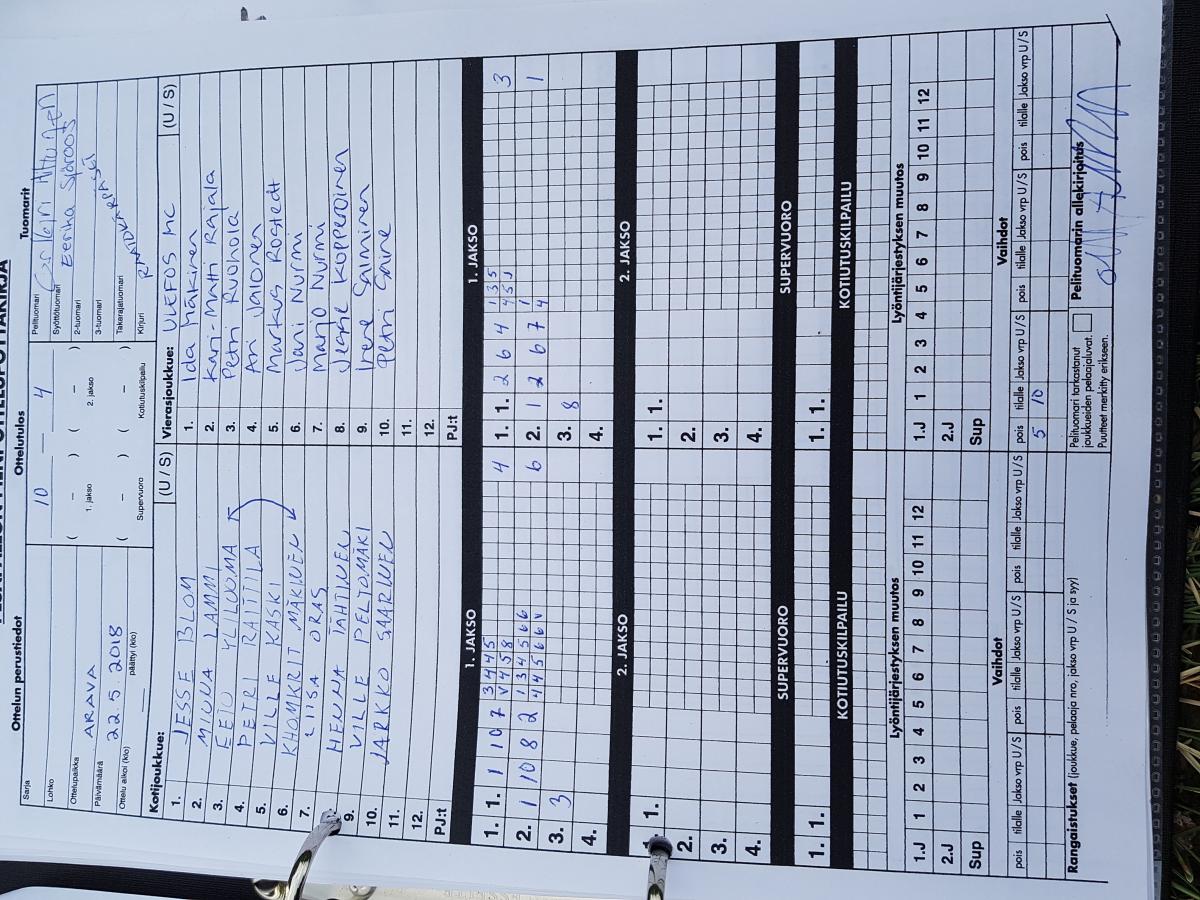 Ottelun perustiedot
Ottelutulos
Tuomarit
Sarja
10 — 4
Pelituomari
Lohko
Syöttötuomari
Eerika Sjöroos
Ottelupaikka ARAVA
( – ) ( – )
2-tuomari
Päivämäärä 22.5.2018
1. jakso 2. jakso
3-tuomari
Ottelu alkoi (klo) päättyi (klo)
( – ) ( – )
Takarajatuomari
Supervuoro Kotiutuskilpailu
Kirjuri
Kotijoukkue: (U / S)
1. JESSE BLOM
2. MINNA LAMMI
3. EEIU YLILUOMA
4. PETRI RAITTILA
5. VILLE KASKI
6. KHOMKRIT MÄKINEN
7. LIISA ORAS
HENNA TÄHTINEN
9. VILLE PELTOMÄKI
10. JARKKO SAARINEN
11.
12.
PJ:t
Vierasjoukkue: ULEFOS hc (U / S)
1. Ida Mäkinen
2. Kari-Matti Rajala
3. Petri Ruohola
4. Ari Jalonen
5. Markus Rostedt
6. Jani Nurmi
7. Marjo Nurmi
8. Jesse Kopperoinen
9. Irene Salminen
10. Petri Laine
11.
12.
PJ:t
1. JAKSO 1. JAKSO
1. 1. 1 10 7 3 4 4 5 4
V 4 5 8
2. 1 10 8 2 1 3 4 5 6 6 6
4 4 5 6 6 V
3. 3
4.
1. 1. 2 6 4 1 3 5 3
4 5
2. 1 2 6 7 1 1
4
3. 8
4.
2. JAKSO 2. JAKSO
1. 1.
2.
3.
4.
1. 1.
2.
3.
4.
SUPERVUORO SUPERVUORO
1. 1. 1. 1.
KOTIUTUSKILPAILU KOTIUTUSKILPAILU
Lyöntijärjestyksen muutos Lyöntijärjestyksen muutos
1.J 1 2 3 4 5 6 7 8 9 10 11 12 1.J 1 2 3 4 5 6 7 8 9 10 11 12
2.J 2.J
Sup Sup
Vaihdot Vaihdot
pois tilalle Jakso vrp U / S pois tilalle Jakso vrp U / S pois tilalle Jakso vrp U / S pois tilalle Jakso vrp U / S pois tilalle Jakso vrp U / S pois tilalle Jakso vrp U / S
5 10
Rangaistukset (joukkue, pelaaja nro, jakso vrp U / S ja syy)
Pelituomari tarkastanut
joukkueiden pelaajaluvat.
Puutteet merkitty erikseen.
Pelituomarin allekirjoitus